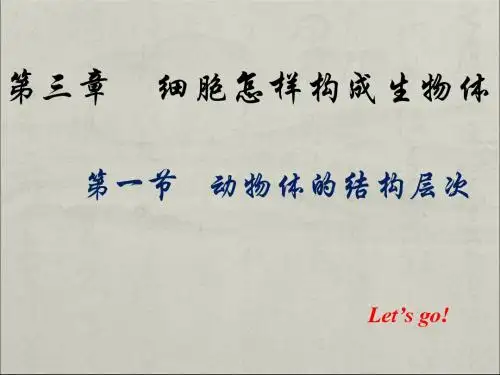 第三章 细胞怎样构成生物体
第一节 动物体的结构层次
Let's go!